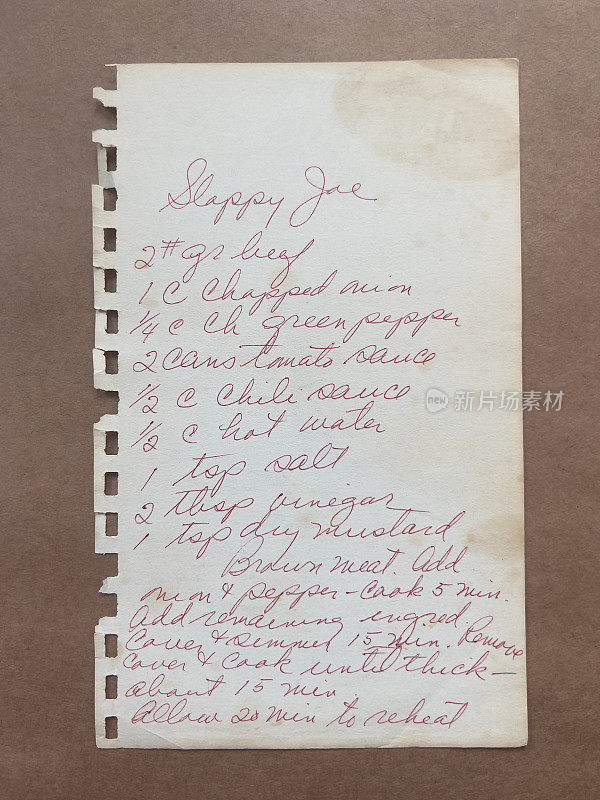 Slappy Joe
2# gr beef
1 c chopped onion
1/4 c ch green pepper
2 cans tomato sauce
1/2 c chili sauce
1/2 c hot water
1 tsp salt
2 tbsp vinegar
1 tsp dry mustard
Brown meat. Add
onion & pepper - cook 5 min.
Add remaining ingred.
Cover & simmer 15 min. Remove
cover & cook until thick -
about 15 min.
Allow 20 min to reheat
new 新片场素材